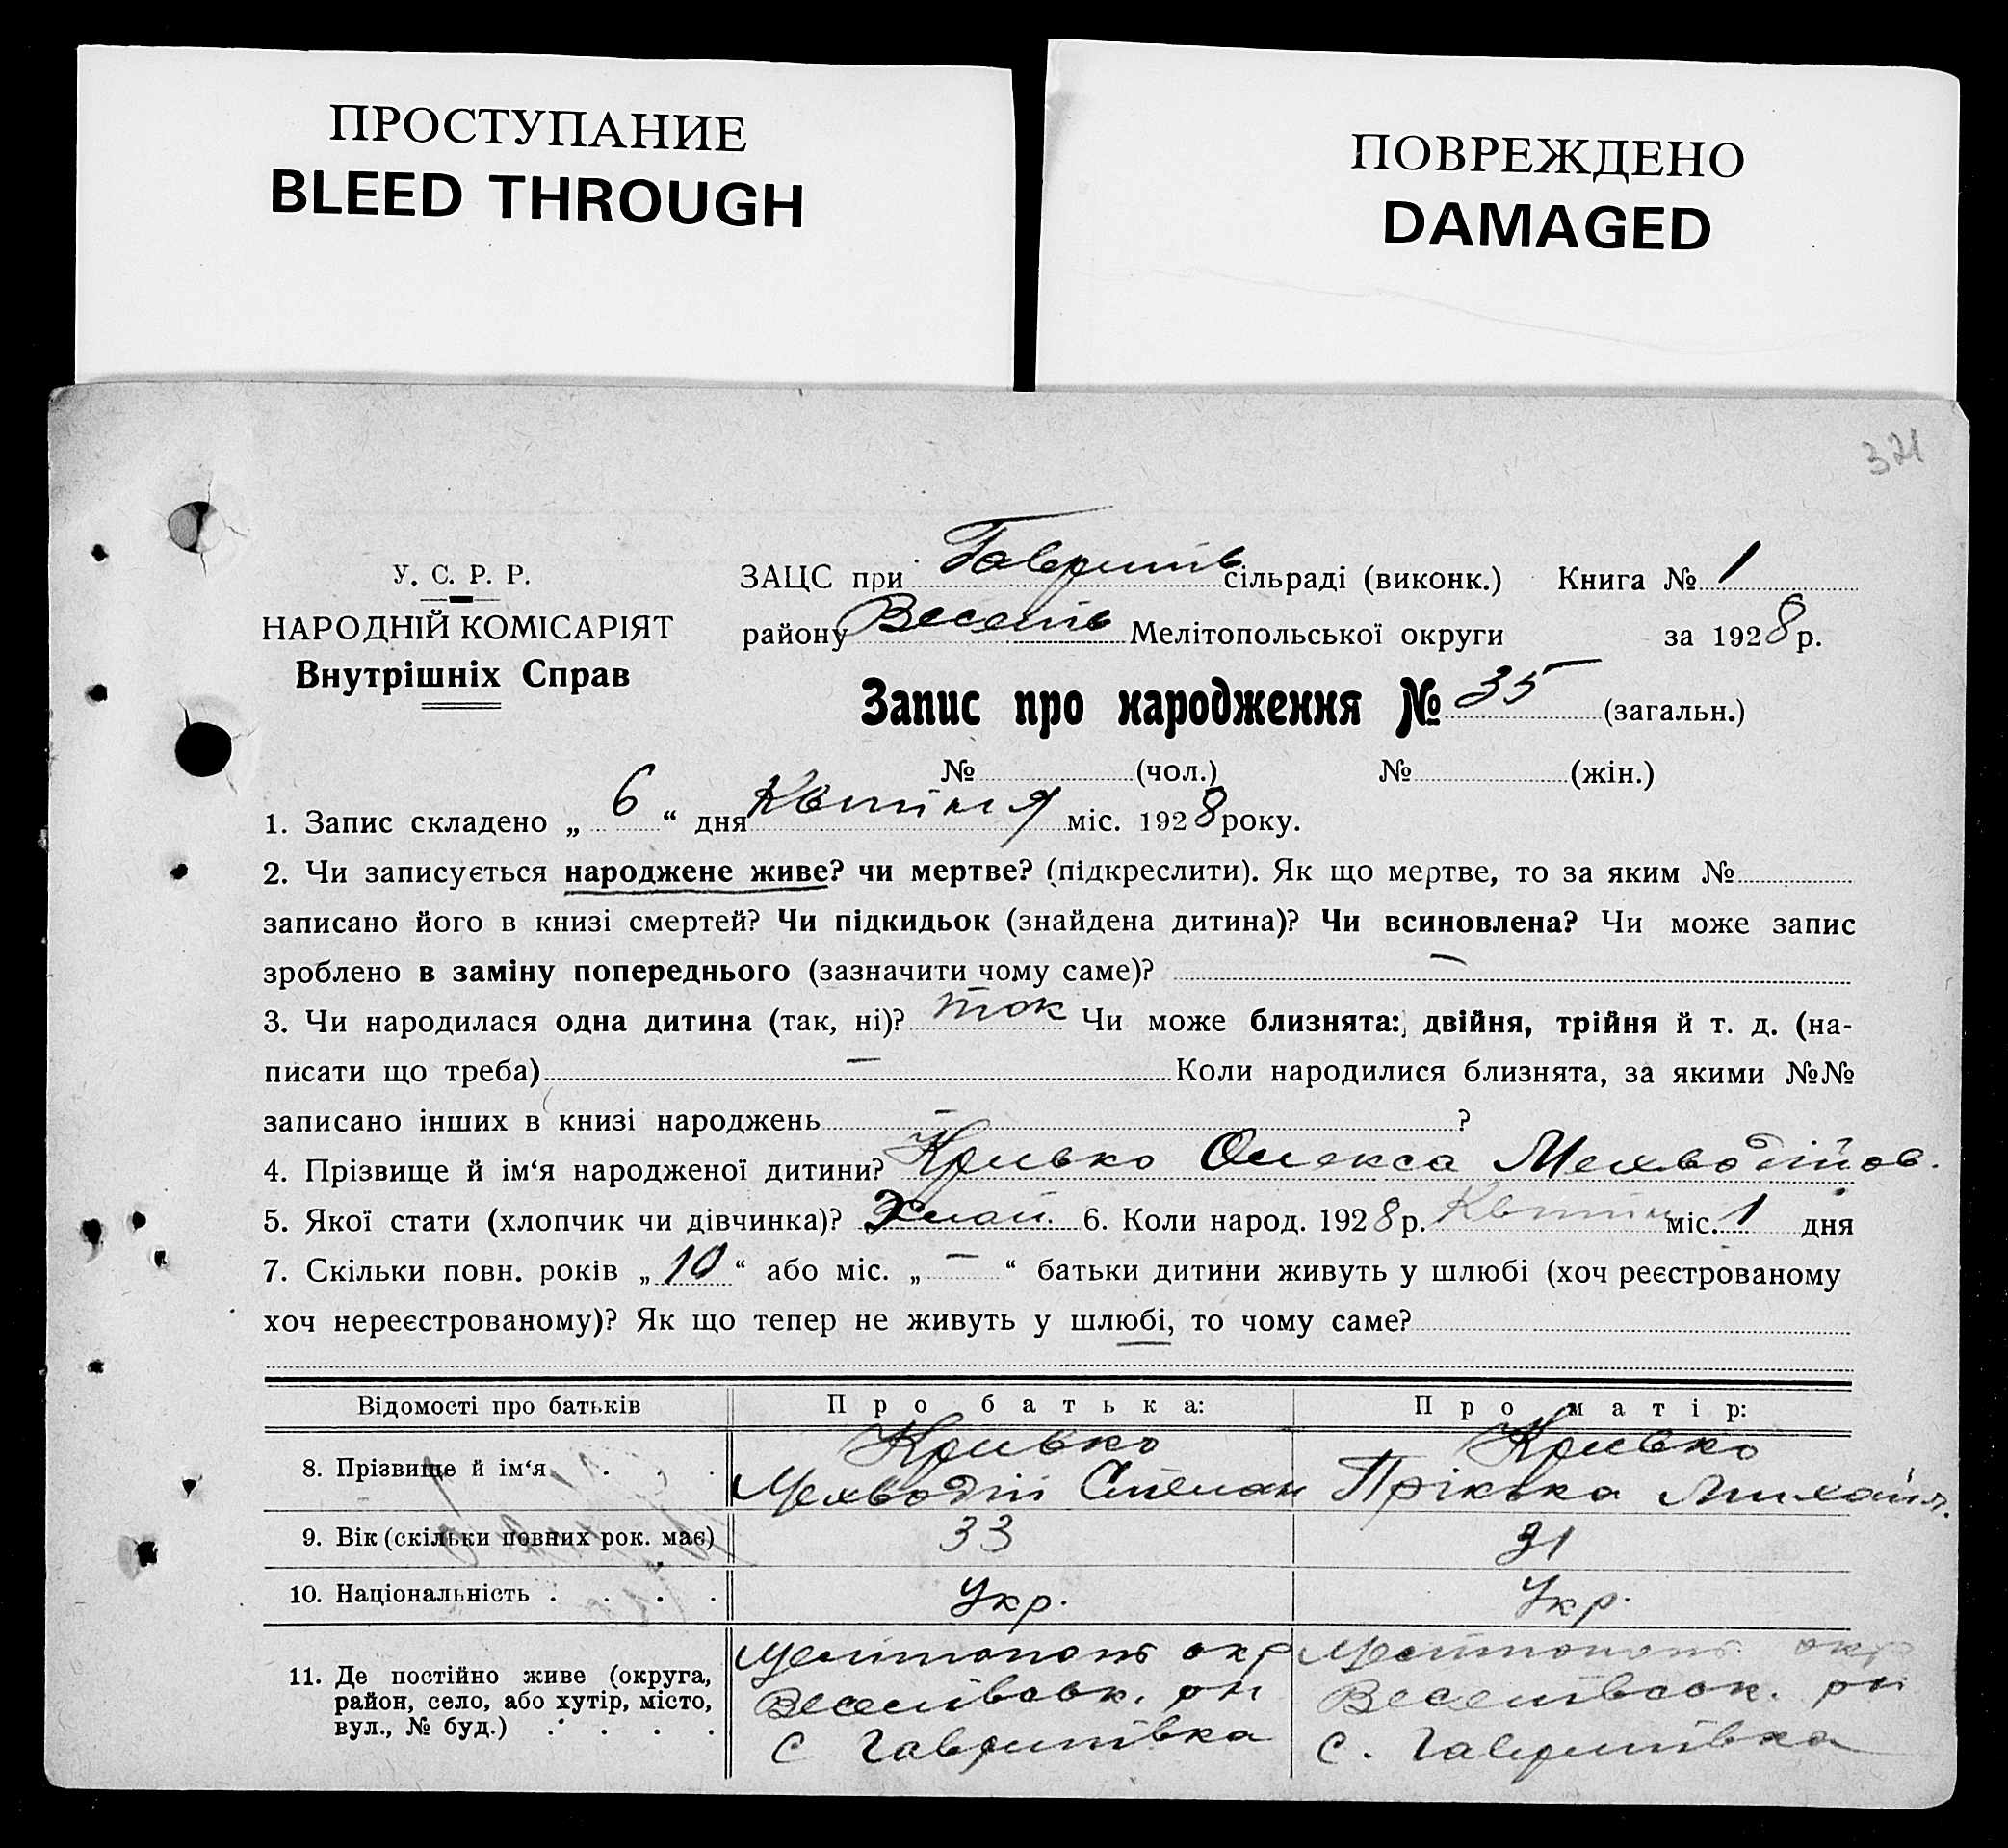 ПРОСТУПАНИЕ
BLEED THROUGH
ПОВРЕЖДЕНО
DAMAGED
321
У. С. Р. Р.
НАРОДНІЙ КОМІСАРІЯТ
Внутрішніх Справ
ЗАЦС при Гаврилів сільраді (виконк.) Книга № 1
району Веселів Мелітопольської округи за 1928 р.
Запис про народження № 35 (загальн.)
№ (чол.) № (жін.)
1. Запис складено „ 6 “ дня Квітня міс. 1928 року.
2. Чи записується народжене живе? чи мертве? (підкреслити). Як що мертве, то за яким №
записано його в книзі смертей? Чи підкидьок (знайдена дитина)? Чи всиновлена? Чи може запис
зроблено в заміну попереднього (зазначити чому саме)? —
3. Чи народилася одна дитина (так, ні)? так Чи може близнята: двійня, трійня й т. д. (на-
писати що треба) — Коли народилися близнята, за якими №№
записано інших в книзі народжень — ?
4. Прізвище й ім‘я народженої дитини? Кривко Олекса Мехводійов.
5. Якої стати (хлопчик чи дівчинка)? 6. Коли народ. 1928 р. Квітня міс. 1 дня
7. Скільки повн. років „ 10 “ або міс. „ — “ батьки дитини живуть у шлюбі (хоч реєстрованому
хоч нереєстрованому)? Як що тепер не живуть у шлюбі, то чому саме?
Відомості про батьків Про батька: Про матір:
8. Прізвище й ім‘я . . . Кривко Мехводій Степан Кривко Пріська Михайл.
9. Вік (скільки повних рок. має) 33 31
10. Національність . . . . Укр. Укр.
11. Де постійно живе (округа,
район, село, або хутір, місто,
вул., № буд.) . . . .
Мелітополь окр
Веселівськ. рн
с Гаврилівка
Мелітополь окр
Веселівськ. рн
с. Гаврилівка